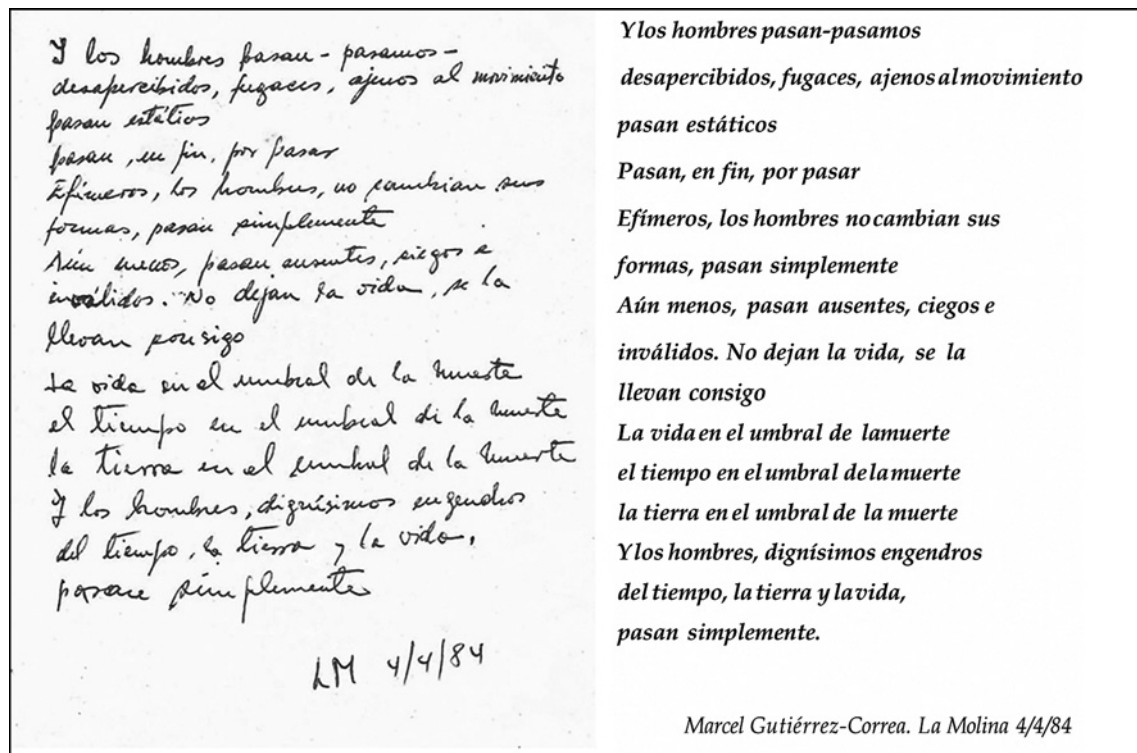 Y los hombres pasan - pasamos -
desapercibidos, fugaces, ajenos al movimiento
pasan estáticos
pasan, en fin, por pasar
Efímeros, los hombres, no cambian sus
formas, pasan simplemente
Aún menos, pasan ausentes, ciegos e
inválidos. No dejan la vida, se la
llevan consigo
La vida en el umbral de la muerte
el tiempo en el umbral de la muerte
la tierra en el umbral de la muerte
Y los hombres, dignísimos engendros
del tiempo, la tierra y la vida,
pasan simplemente
LM 4/4/84
Y los hombres pasan-pasamos
desapercibidos, fugaces, ajenos al movimiento
pasan estáticos
Pasan, en fin, por pasar
Efímeros, los hombres no cambian sus
formas, pasan simplemente
Aún menos, pasan ausentes, ciegos e
inválidos. No dejan la vida, se la
llevan consigo
La vida en el umbral de la muerte
el tiempo en el umbral de la muerte
la tierra en el umbral de la muerte
Y los hombres, dignísimos engendros
del tiempo, la tierra y la vida,
pasan simplemente.
Marcel Gutiérrez-Correa. La Molina 4/4/84